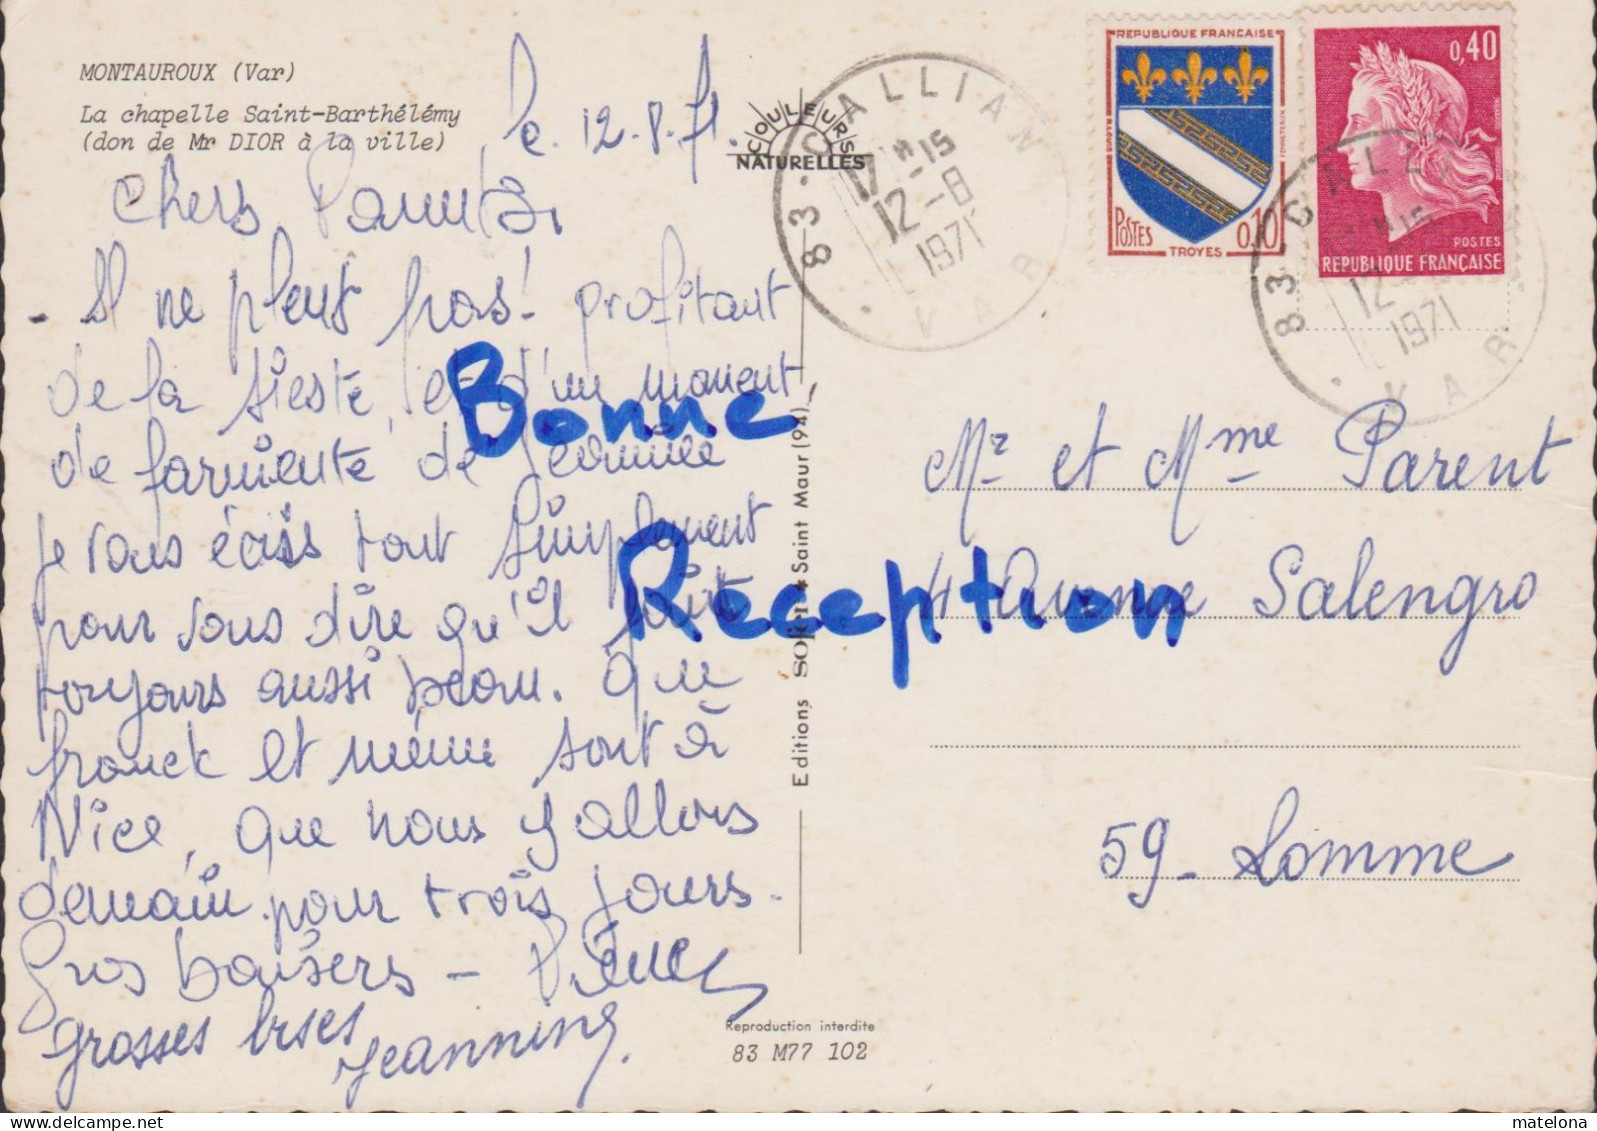 MONTAUROUX (Var)
La chapelle Saint-Barthélémy
(don de Mr DIOR à la ville)
le 12.8.71.
Chers
- Il ne pleut pas! profitant
de la sieste, et d'un moment
de farniente de Jeannine
je vous écris tout simplement
pour vous dire qu'il fait
toujours aussi beau. Que
franck et mémé sont à
Nice, que nous y allons
demain pour trois jours.
Gros baisers -
grosses bises
Jeannine.
COULEURS
NATURELLES
Editions SOFER ★ Saint Maur (94)
Reproduction interdite
83 M77 102
83 - CALLIAN
17H15
12-8
1971
VAR
REPUBLIQUE FRANÇAISE
POSTES
0,10
TROYES
0,40
POSTES
REPUBLIQUE FRANÇAISE
83
12
1971
VAR
Mr et Mme Parent
4 Avenue Salengro
59 - Lomme
Bonne
Réception
matelona